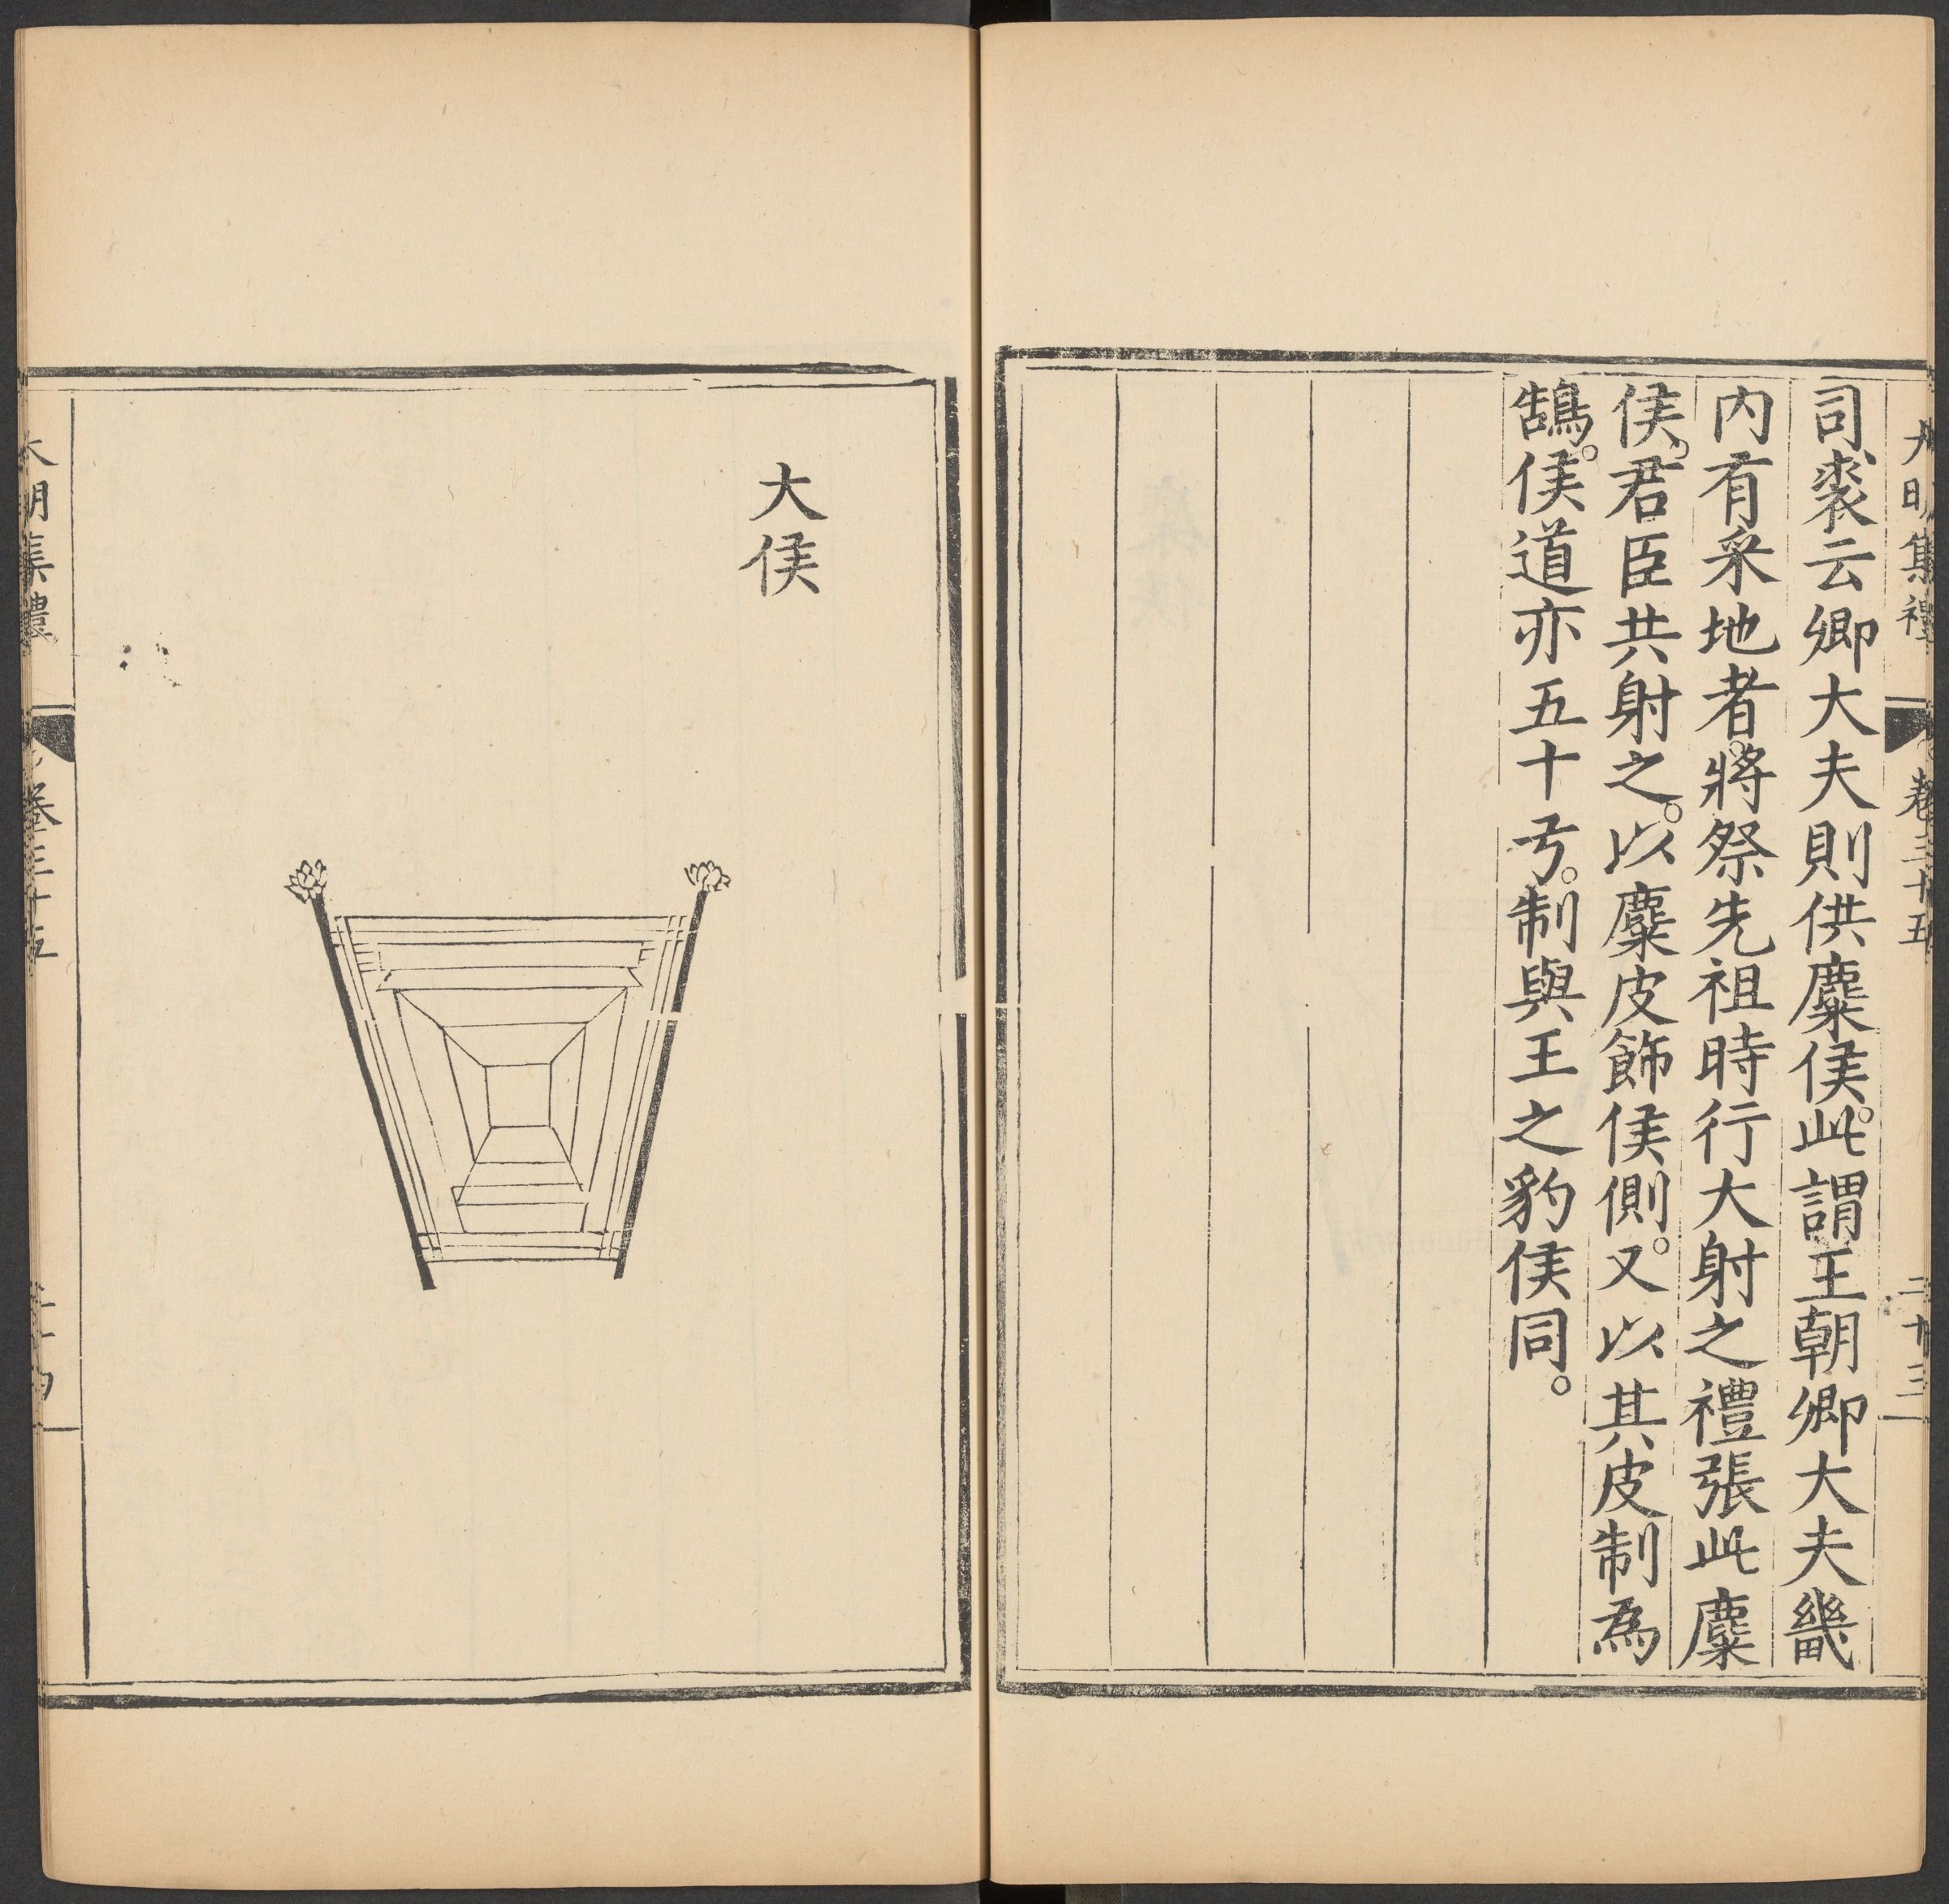 大明集禮 卷三十五 二十三
司裘云卿大夫則供麋侯。此謂王朝卿大夫畿
内有采地者。將祭先祖時行大射之禮張此麋
侯。君臣共射之。以麋皮飾侯側。又以其皮制為
鵠。侯道亦五十弓。制與王之豹侯同。
大侯
大明集禮 卷三十五